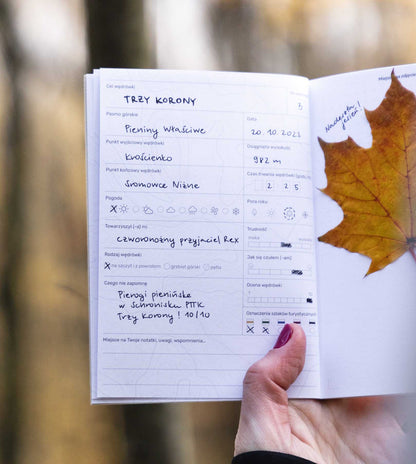 Cel wędrówki
TRZY KORONY
5
Miejsce na zdjęcie
Pasmo górskie
Pieniny Właściwe
Data
20.10.2023
Nadeszła jesień!
Punkt wyjściowy wędrówki
Krościenko
Osiągnięta wysokość
982 m
Punkt końcowy wędrówki
Sromowce Niżne
Czas trwania wędrówki
2 2 5
Pogoda
Pora roku
Towarzyszył (-a) mi
czworonożny przyjaciel Rex
Trudność
niska
wysoka
Rodzaj wędrówki
na szczyt i z powrotem
grzbiet górski
pętla
Jak się czułem (-am)
Czego nie zapomnę
Pierogi pienińskie
w Schronisku PTTK
Trzy Korony! 10/10
Ocena wędrówki
Oznaczenia szlaków turystycznych
Miejsce na Twoje notatki, uwagi, wspomnienia...